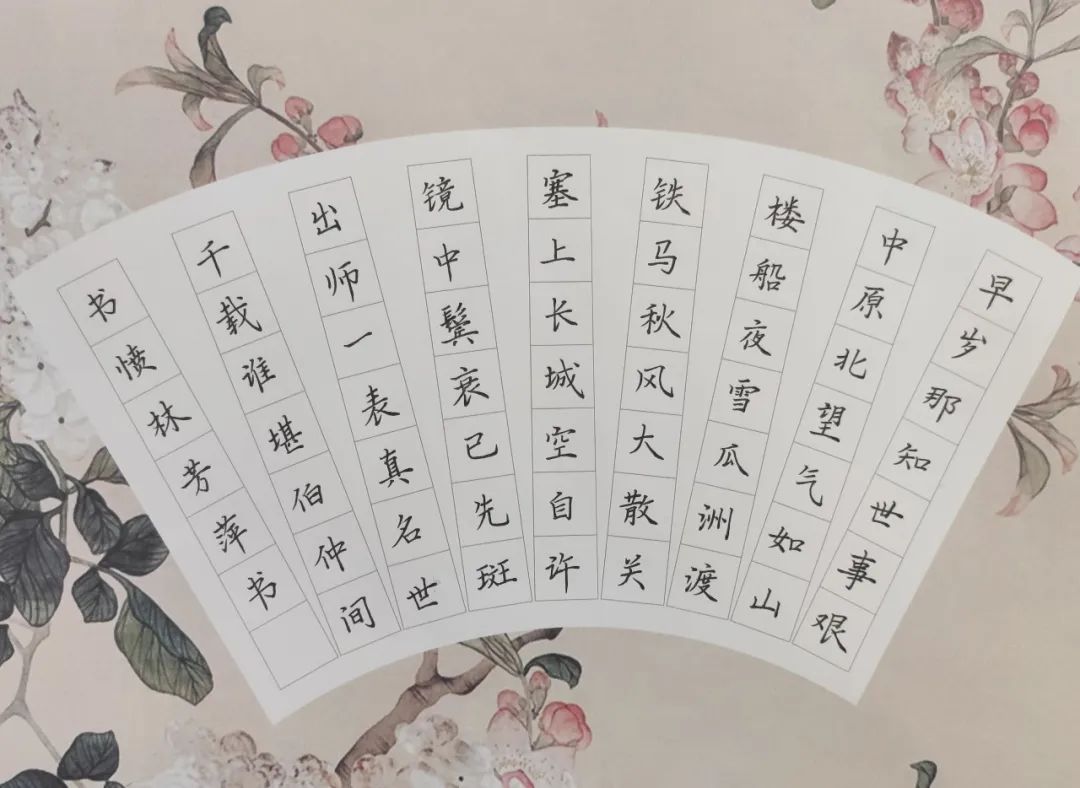 早岁那知世事艰
中原北望气如山
楼船夜雪瓜洲渡
铁马秋风大散关
塞上长城空自许
镜中鬓衰已先斑
出师一表真名世
千载谁堪伯仲间
书愤林芳萍书